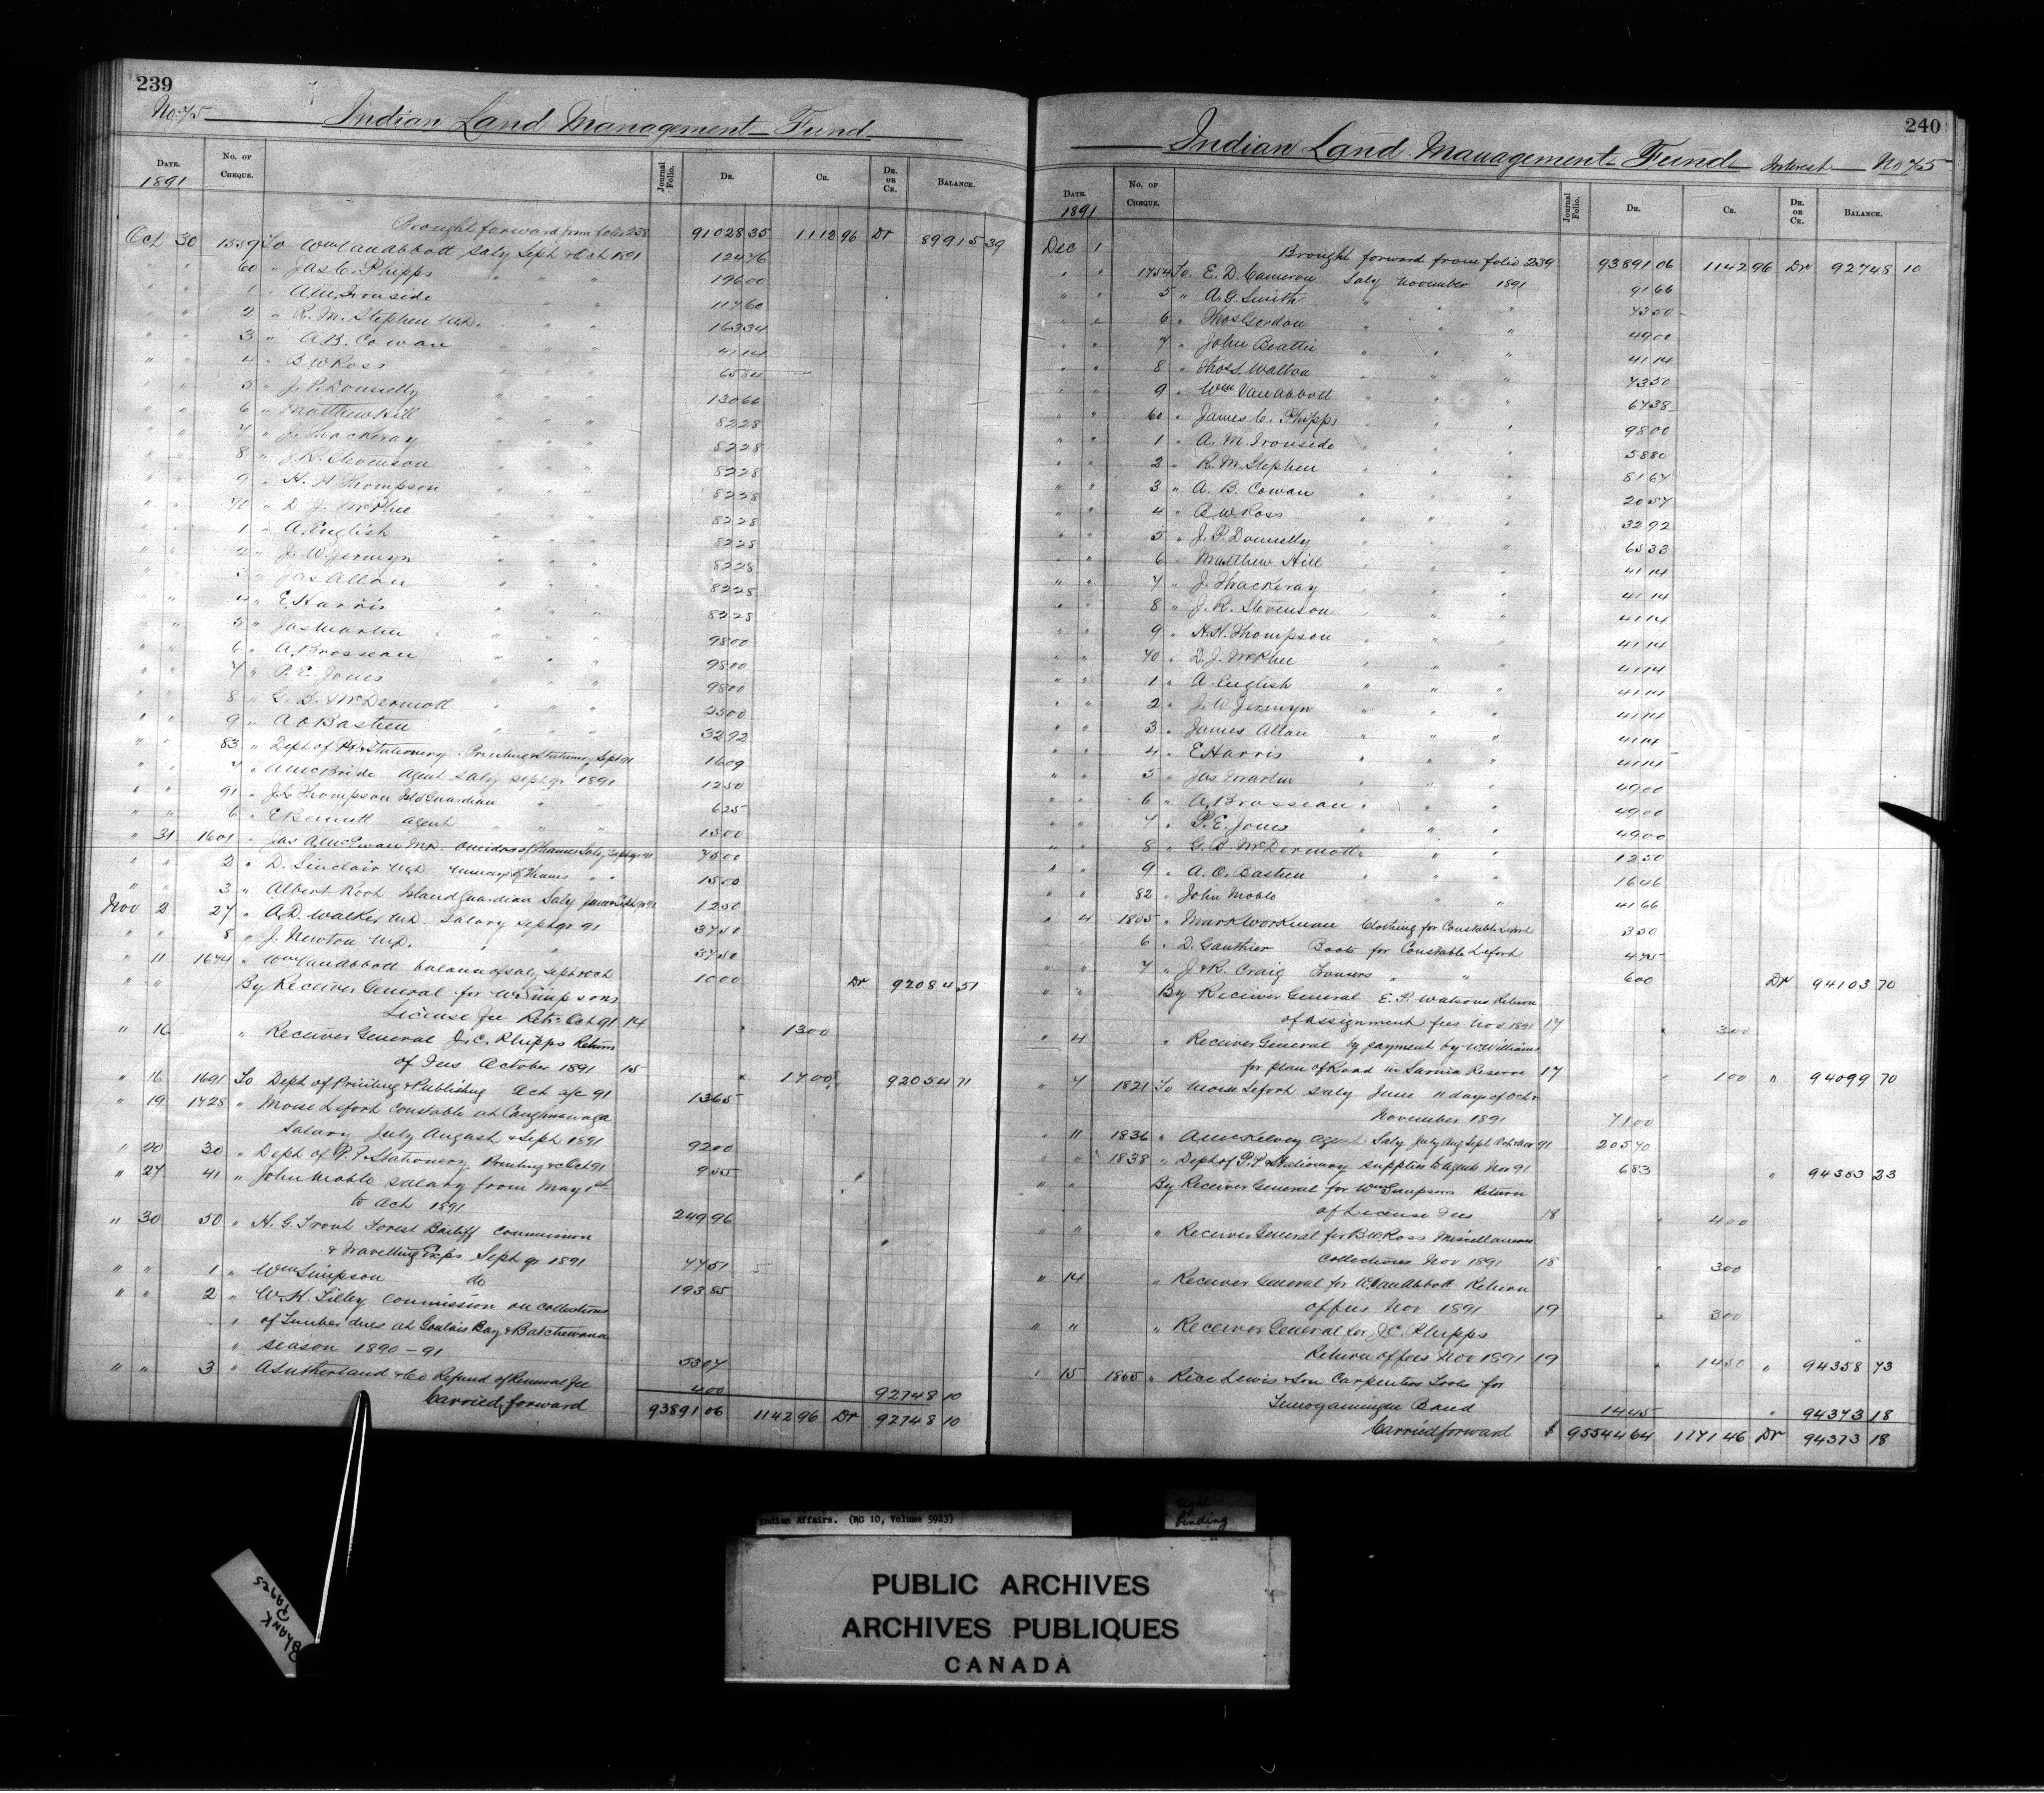 239
No. 75 Indian Land Management Fund
Date. No. of Cheque. Journal Folio. Dr. Cr. Dr. or Cr. Balance.
1891
Brought forward from folio 238 91028 35 1112 96 Dr 89915 39
Oct 30 1559 To Wm Van Abbott Saly Sept & Oct 1891 124 76
" " 60 " Jas C. Phipps " " " 196 00
" " 1 " A.M. Ironside " " " 117 60
" " 2 " R. M. Stephen M.D. " " " 163 34
" " 3 " A.B. Cowan " " " 41 14
" " 4 " B W Ross " " " 65 84
" " 5 " J. P. Donnelly " " " 130 66
" " 6 " Matthew Hill " " " 82 28
" " 7 " J. Thackeray " " " 82 28
" " 8 " J. R. Stevenson " " " 82 28
" " 9 " H. H. Thompson " " " 82 28
" " 70 " D. J. McPhee " " " 82 28
" " 1 " A. English " " " 82 28
" " 2 " J. W. Jermyn " " " 82 28
" " 3 " Jas Allan " " " 82 28
" " 4 " E. Harris " " " 82 28
" " 5 " Jas Martin " " " 98 00
" " 6 " A. Brosseau " " " 98 00
" " 7 " P. E. Jones " " " 98 00
" " 8 " G. B. McDermott " " " 25 00
" " 9 " A O Bastien " " " 32 92
" " 83 " Dept of P.P. & Stationery Printing & Stationery Sept 91 16 09
" " 7 " A McBride Agent Saly Sept qr 1891 12 50
" " 91 " J. L. Thompson Isld Guardian " " 6 25
" " 6 " E Bennett agent " " " 15 00
" 31 1601 " Jas A. McEwan M.D. Oneidas of Thames Saly Sept qr 91 75 00
" " 2 " D. Sinclair M.D. Munceys of Thames " " 15 00
" " 3 " Albert Root Island Guardian Saly June & Sept qr 91 12 50
Nov 2 27 " A.D. Walker M.D. Salary Sept qr 91 37 50
" " 8 " J. Newton M.D. " " 37 50
" 11 1644 " Wm Van Abbott balance of saly Sept & Oct 10 00 Dr 92084 51
" " By Receiver General for W. Simpsons
License fee Retn Oct 91 14 13 00
" 16 " Receiver General J.C. Phipps Return
of Fees October 1891 15 17 00
" 16 1691 To Dept of Printing & Publishing Oct a/c 91 13 65 92054 71
" 19 1728 " Moise Lefort Constable at Caughnawaga
Salary July August & Sept 1891 92 00
" 20 30 " Dept of P. P. Stationery Printing &c Oct 91 9 55
" 27 41 " John Moblo Salary from May 1st
to Oct 1891 249 96
" 30 50 " H. G. Trout Forest Bailiff Commission
& Travelling Exps Sept qr 1891 77 51
" " 1 " Wm Simpson do 193 85
" " 2 " W. H. Tilley Commission on collections
" of Timber dues at Goulais Bay & Batchewana
" Season 1890-91 53 07
" " 3 " A Sutherland & Co Refund of Renewal fee 4 00 92748 10
Carried forward 93891 06 1142 96 Dr 92748 10
240
Indian Land Management Fund Interest No 75
Date. No. of Cheque. Journal Folio. Dr. Cr. Dr. or Cr. Balance.
1891
Dec 1 Brought forward from folio 239 93891 06 1142 96 Dr 92748 10
" " 1754 To E. D. Cameron Saly November 1891 91 66
" " 5 " A. G. Smith " " " 73 50
" " 6 " Thos Gordon " " " 49 00
" " 7 " John Beattie " " " 41 14
" " 8 " Thos S. Walton " " " 73 50
" " 9 " Wm Van Abbott " " " 67 38
" " 60 " James C. Phipps " " " 98 00
" " 1 " A. M. Ironside " " " 58 80
" " 2 " R. M. Stephen " " " 81 67
" " 3 " A. B. Cowan " " " 20 57
" " 4 " B. W. Ross " " " 32 92
" " 5 " J. P. Donnelly " " " 65 33
" " 6 " Matthew Hill " " " 41 14
" " 7 " J. Thackeray " " " 41 14
" " 8 " J. R. Stevenson " " " 41 14
" " 9 " H. H. Thompson " " " 41 14
" " 70 " D. J. McPhee " " " 41 14
" " 1 " A. English " " " 41 14
" " 2 " J. W. Jermyn " " " 41 14
" " 3 " James Allan " " " 41 14
" " 4 " E Harris " " " 41 14
" " 5 " Jas Martin " " " 49 00
" " 6 " A. Brosseau " " " 49 00
" " 7 " P. E. Jones " " " 49 00
" " 8 " G. B. McDermott " " " 12 50
" " 9 " A. O. Bastien " " " 16 46
" " 82 " John Moblo " " 41 66
" 4 1805 " Mark Workman Clothing for Constable Lefort 3 50
" 6 " D. Gauthier Boots for Constable Lefort 4 75
" " 7 " J & R. Craig Trousers " " 6 00 Dr 94103 70
" " By Receiver General E. P. Watsons Return
of assignment fees Nov 1891 17 3 00
" 4 " Receiver General by payment by W. Williams
for plan of Road in Sarnia Reserve 17 1 00 " 94099 70
" 7 1821 To Moise Lefort Saly June 11 days of Oct &
November 1891 71 00
" 11 1836 " A McKelvey Agent Saly July Aug Sept Oct & Nov 91 205 70
" " 1838 " Dept of P.P. & Stationery supplies to agents Nov 91 6 83 " 94383 23
" " By Receiver General for Wm Simpsons Return
of License Fees 18 4 00
" " " Receiver General for B W Ross Miscellaneous
Collections Nov 1891 18 3 00
" 14 " Receiver General for W. Van Abbott Return
of fees Nov 1891 19 3 00
" " " Receiver General for J. C. Phipps
Return of fees Nov 1891 19 14 50 " 94358 73
" 15 1865 " Rice Lewis & Son Carpenters Tools for
Temogamingue Band 14 45 " 94373 18
Carried forward $ 95544 64 1171 46 Dr 94373 18
Indian Affairs. (RG 10, Volume 5923)
tight
binding
BLANK
PAGES
PUBLIC ARCHIVES
ARCHIVES PUBLIQUES
CANADA